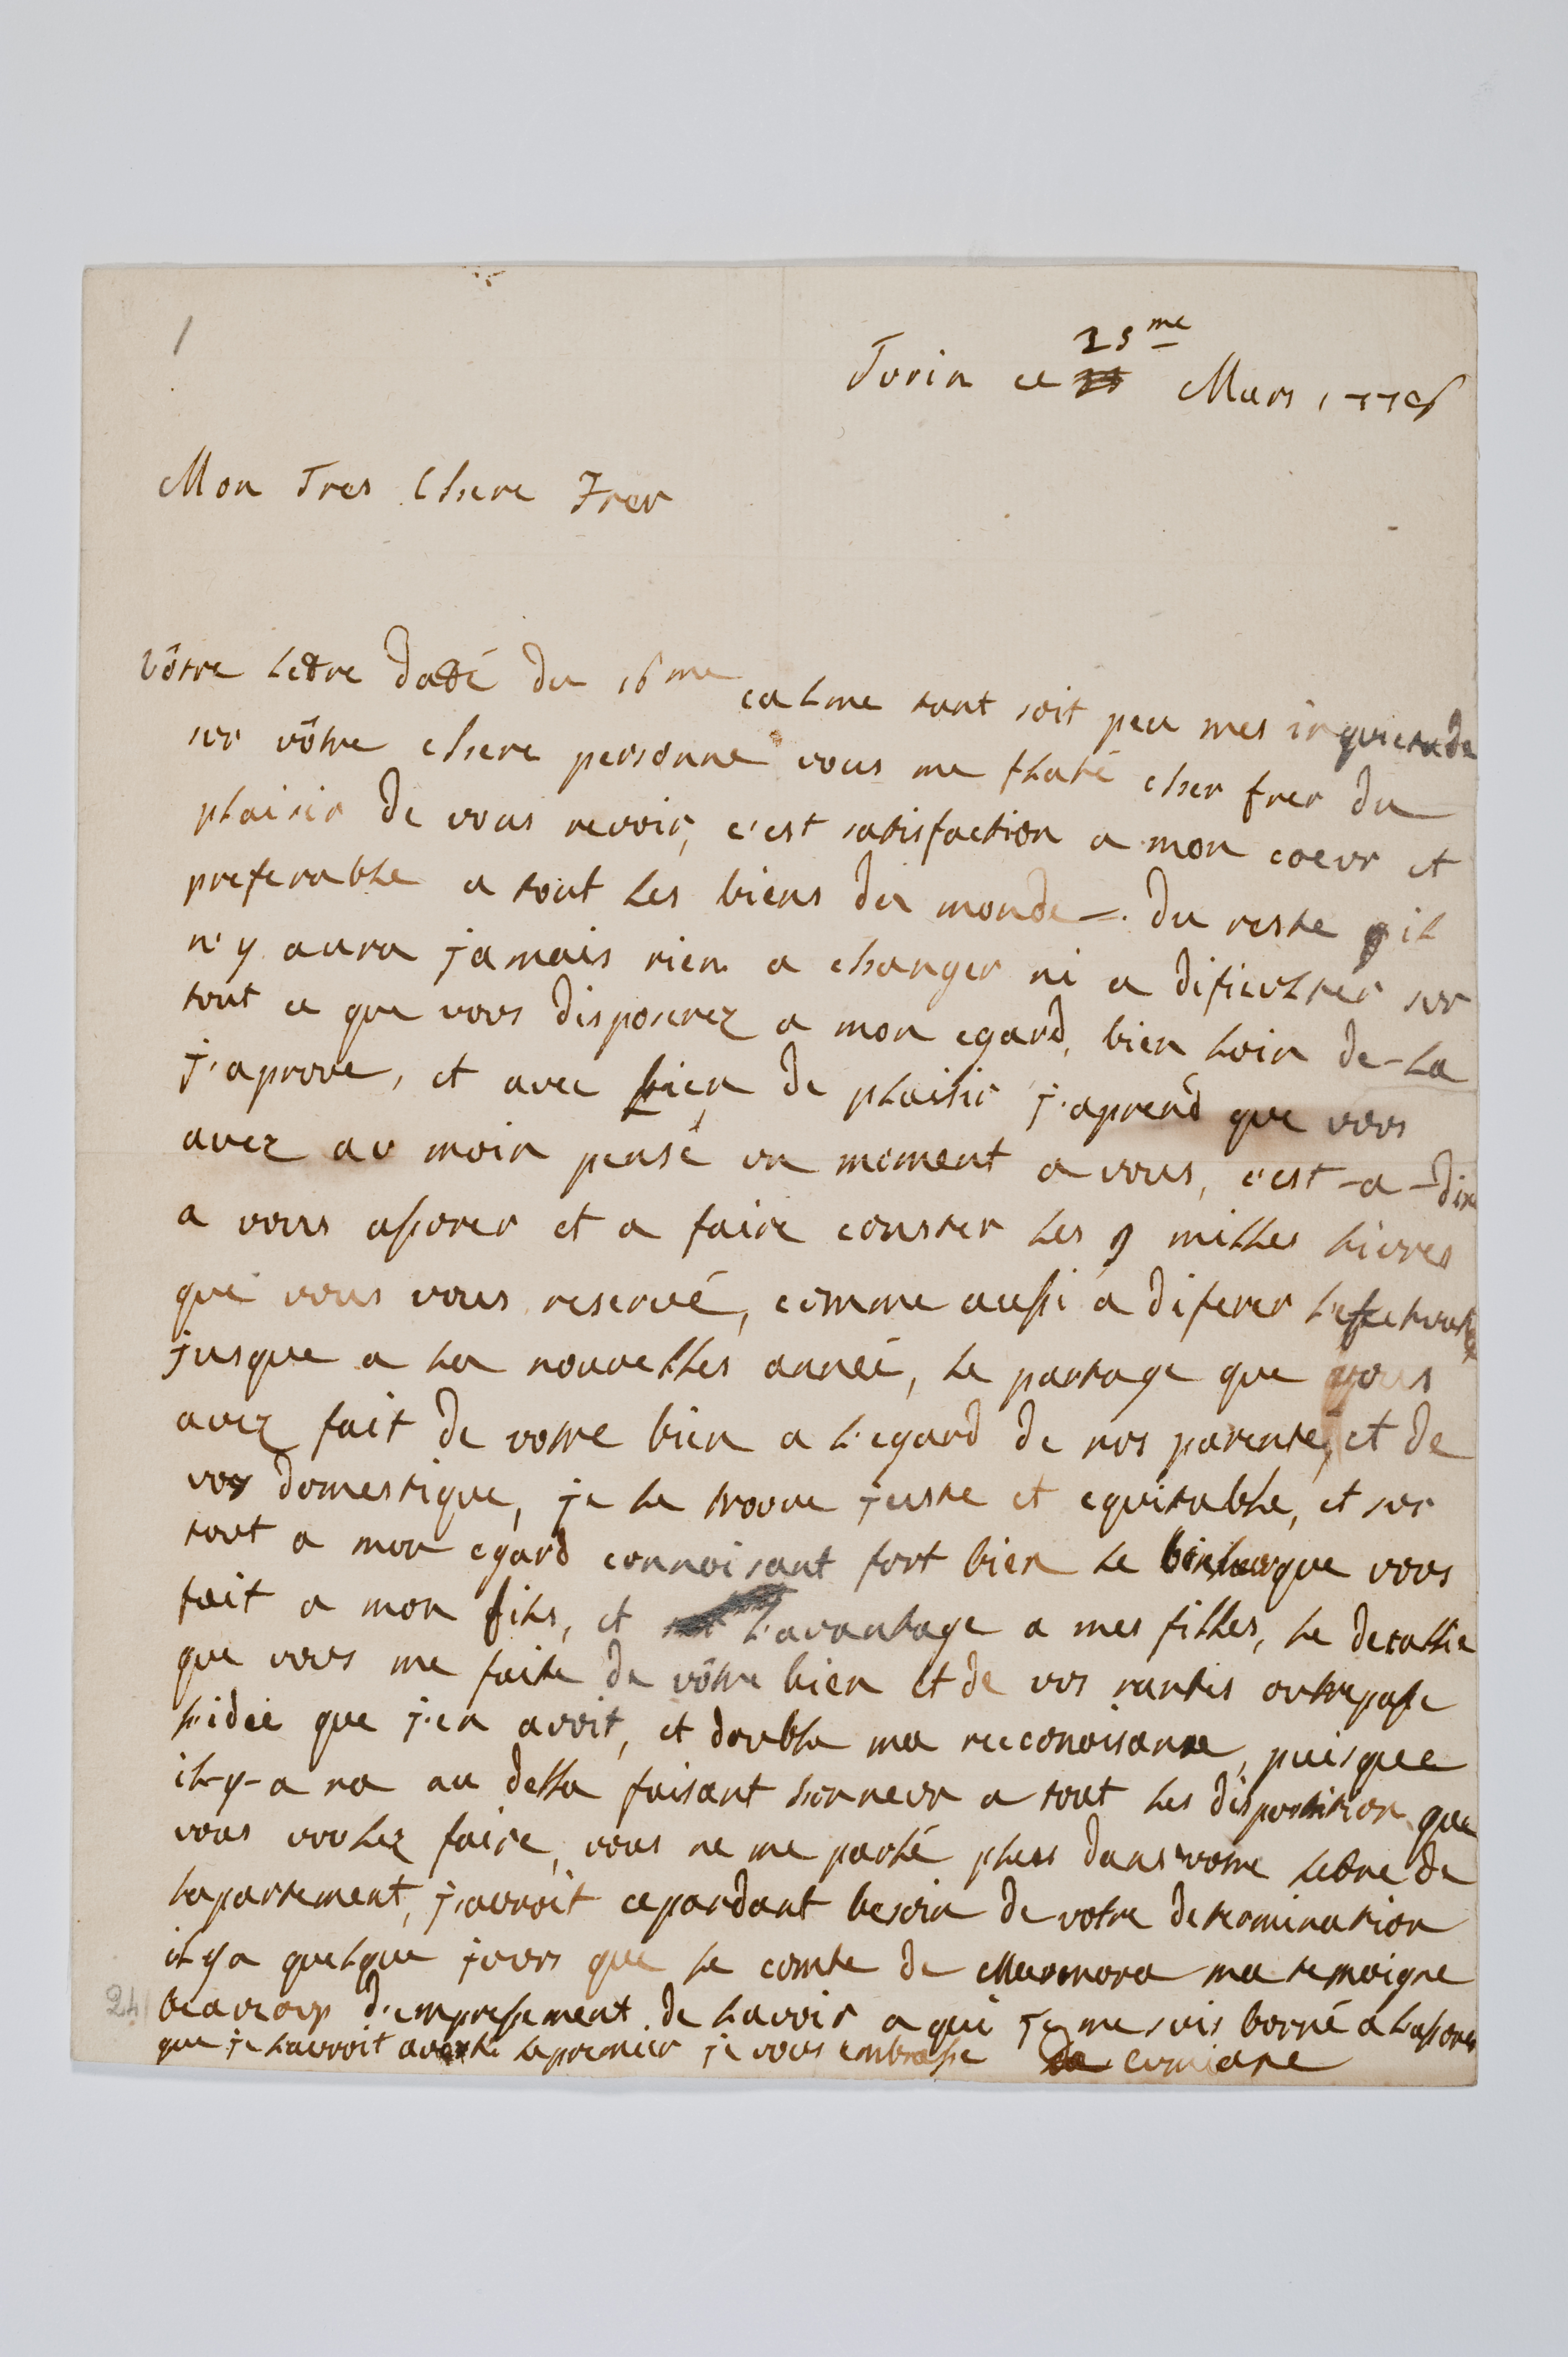 1
25me
Turin ce Mars 1776
Mon Tres Chere Frer
Vôtre letre daté du 16me calme tant soit peu mes inquietude
sur vôtre chere personne vous me flaté cher frer du
plaisir de vous revoir, c'est satisfaction a mon coeur et
preferable a tout les biens du monde =. du reste il
n'y aura jamais rien a changer ni a dificulter sur
tout ce que vous disposerez a mon egard, bien loin de-la
j'aprove, et avec bien de plaisir j'aprend que vous
avez au moin pensé un moment a vous, c'est-a-dire
a vous assorer et a faire conster les 9 milles livres
que vous vous reservé, comme aussi a diferer
jusque a la nouvelles anneé, le partage que vous
avez fait de votre bien a l'egard de nos parents, et de
vos domestique, je le trouve juste et equitable, et sur
tout a mon egard connoisant fort bien le que vous
fait a mon fils, et l'avantage a mes filles, le detallie
que vous me faite de vôtre bien et de vos rantes outrepasse
l'ideé que j'en avoit, et double ma reconoisance, puisque
il-y-a na au della faisant honneur a tout les disposition que
vous voulez faire, vous ne me parlé plus dans votre letre de
lapartement, j'auroit cepandant besoin de votre determination
il y a quelque jours que le comte de Marmora ma temoigne
beaucoup d'empressement de lavoir a qui je me suis borné a lassorer
que je lauroit averti le premier je vous embrasse de Cumiane
24